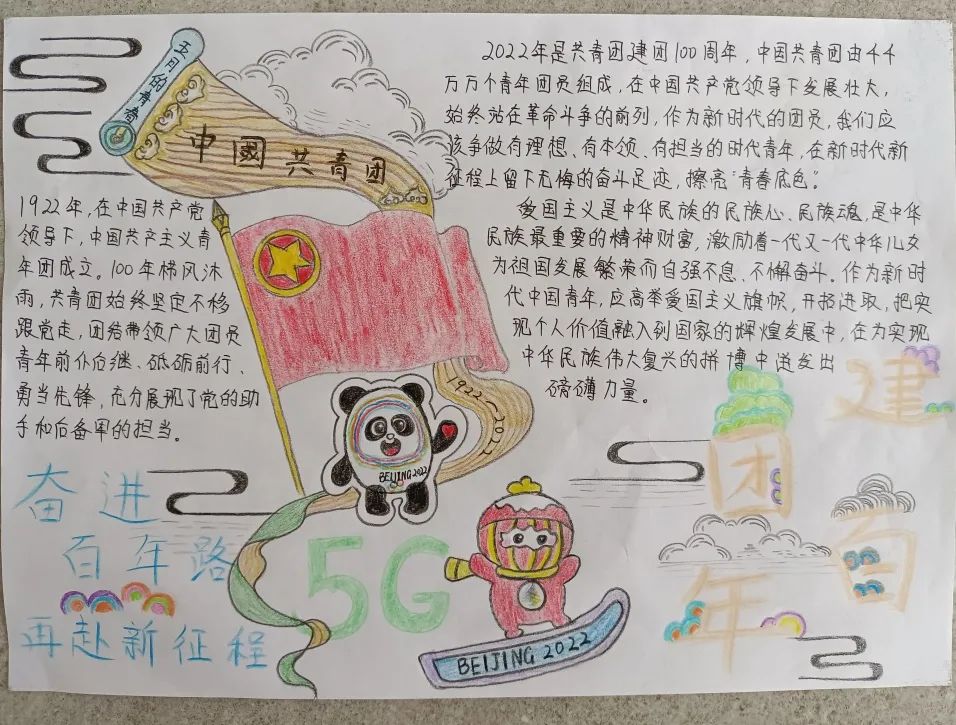 五月的青春
中國共青团
2022年是共青团建团100周年，中国共青团由千千
万万个青年团员组成，在中国共产党领导下发展壮大，
始终站在革命斗争的前列，作为新时代的团员，我们应
该争做有理想、有本领、有担当的时代青年，在新时代新
征程上留下无悔的奋斗足迹，擦亮“青春底色”。
1922年，在中国共产党
领导下，中国共产主义青
年团成立。100年栉风沐
雨，共青团始终坚定不移
跟党走，团结带领广大团员
青年前仆后继、砥砺前行、
勇当先锋，充分展现了党的助
手和后备军的担当。
爱国主义是中华民族的民族心、民族魂，是中华
民族最重要的精神财富，激励着一代又一代中华儿女
为祖国发展繁荣而自强不息、不懈奋斗。作为新时
代中国青年，应高举爱国主义旗帜，开拓进取，把实
现个人价值融入到国家的辉煌发展中，在为实现
中华民族伟大复兴的拼搏中迸发出
磅礴力量。
1922-2022
BEIJING 2022
奋进
百年路
再赴新征程
5G
BEIJING 2022
建
团
百
年